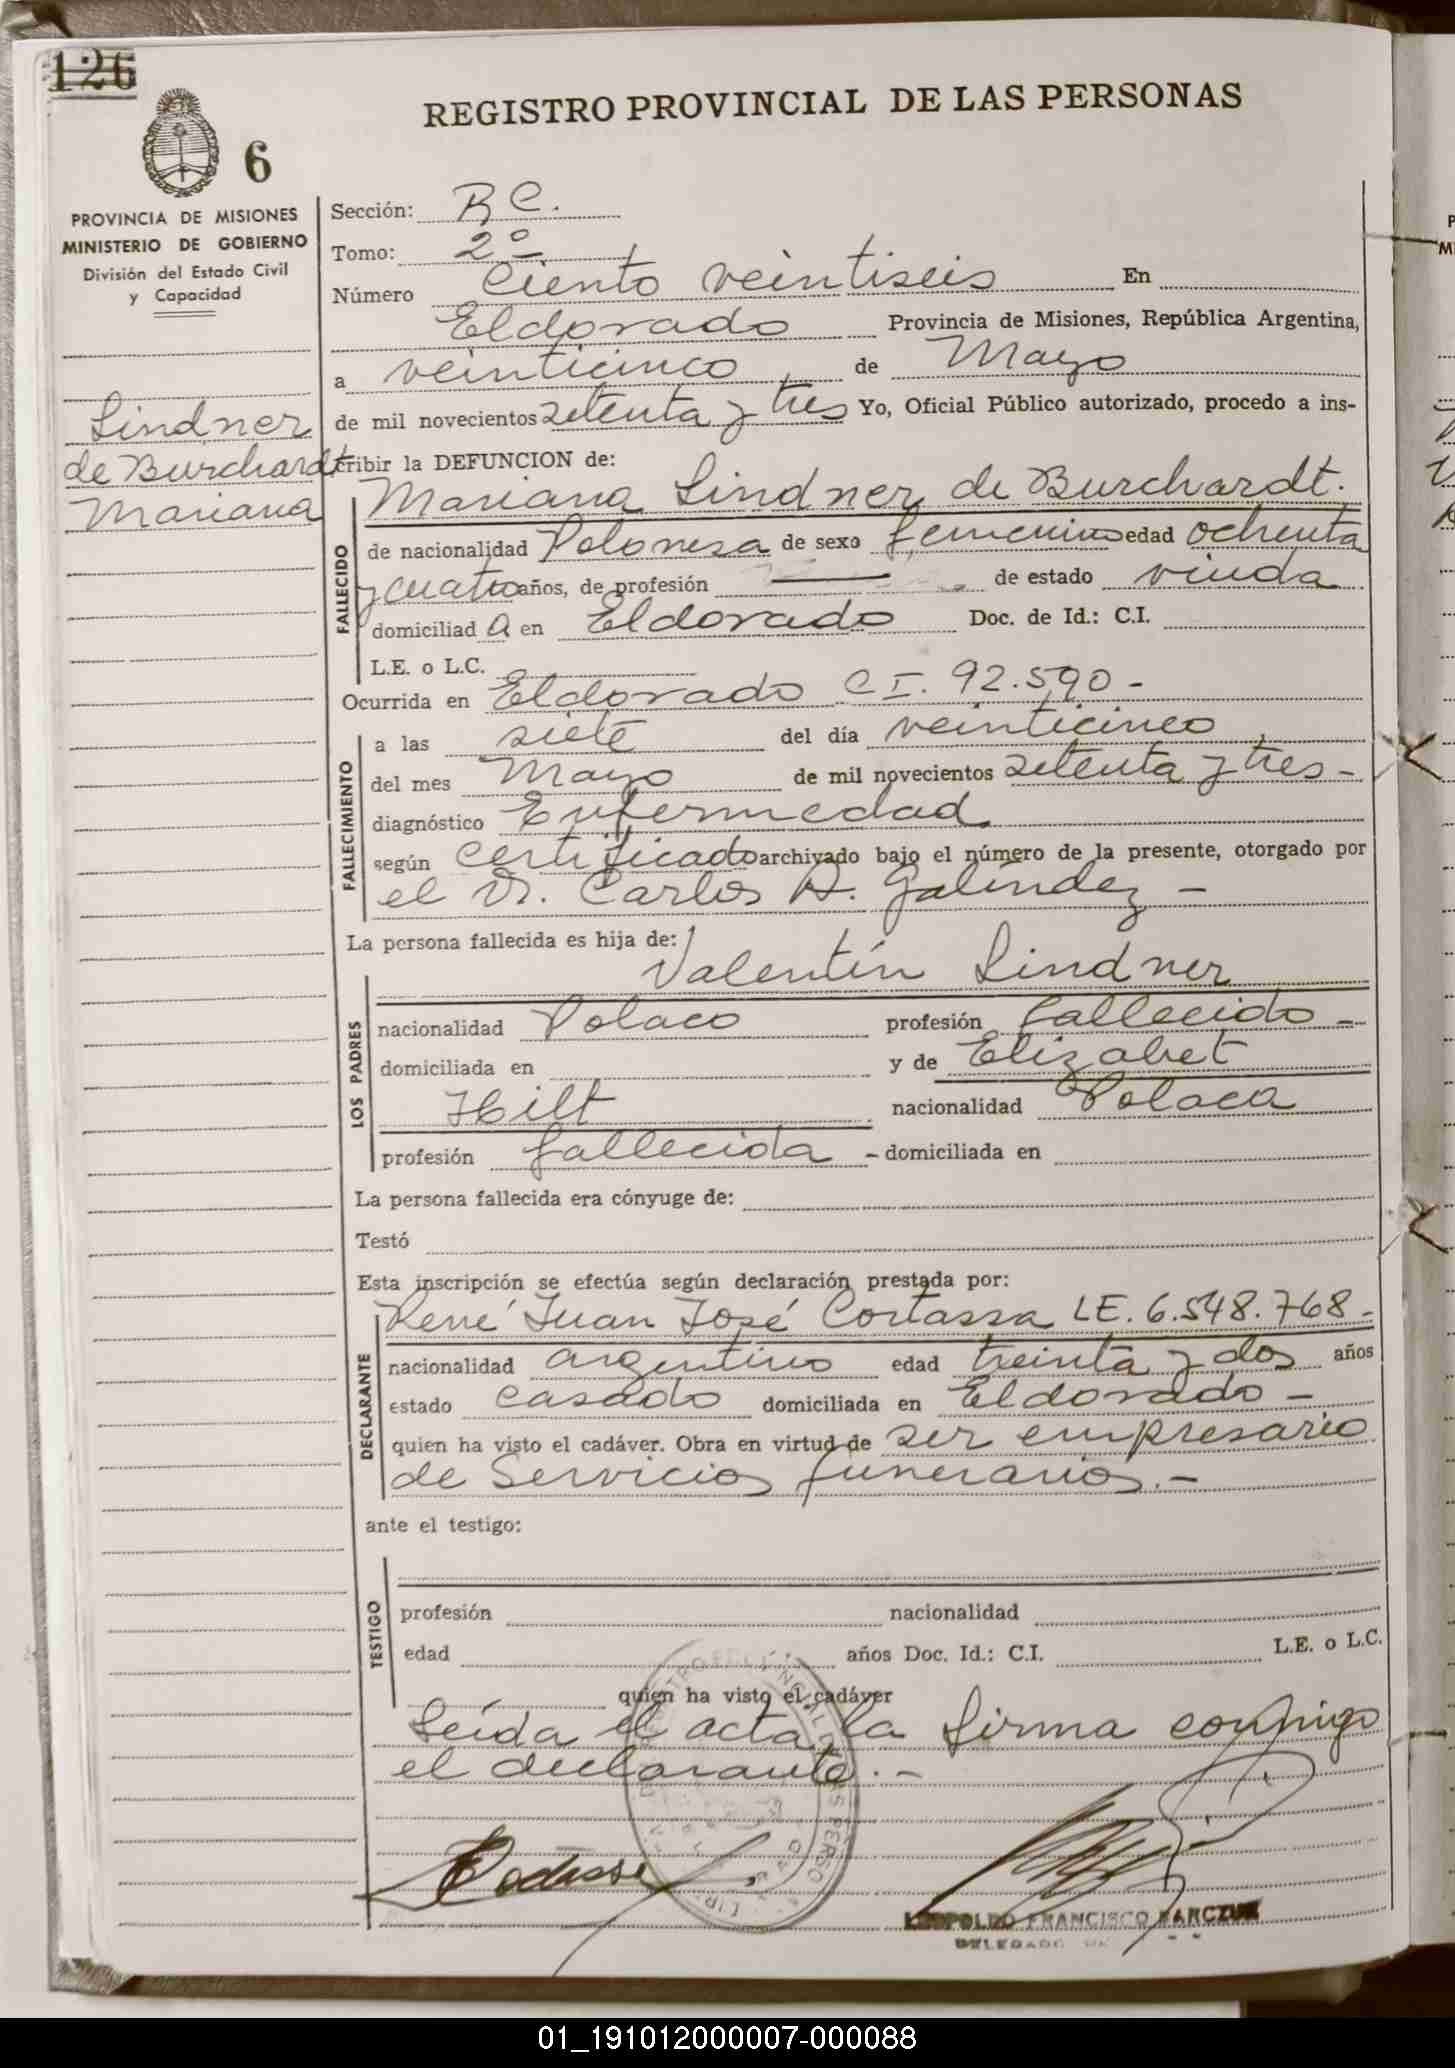 126
REGISTRO PROVINCIAL DE LAS PERSONAS
6
PROVINCIA DE MISIONES
MINISTERIO DE GOBIERNO
División del Estado Civil
y Capacidad
Lindner
de Burchardt
Mariana
Sección: R C.
Tomo: 2º
Número Ciento veintiseis En
Eldorado Provincia de Misiones, República Argentina,
a veinticinco de Mayo
de mil novecientos setenta y tres Yo, Oficial Público autorizado, procedo a ins-
cribir la DEFUNCION de:
Mariana Lindner de Burchardt.
FALLECIDO
de nacionalidad Polonesa de sexo femenino edad ochenta
y cuatro años, de profesión — de estado viuda
domiciliad a en Eldorado Doc. de Id.: C.I.
L.E. o L.C.
Ocurrida en Eldorado C I. 92.590-
FALLECIMIENTO
a las siete del día veinticinco
del mes Mayo de mil novecientos setenta y tres-
diagnóstico Enfermedad
según certificado archivado bajo el número de la presente, otorgado por
el Dr. Carlos A. Galíndez -
La persona fallecida es hija de:
Valentín Lindner
LOS PADRES
nacionalidad Polaco profesión fallecido -
domiciliada en y de Elizabet
Hilt nacionalidad Polaca
profesión fallecida - domiciliada en
La persona fallecida era cónyuge de:
Testó
Esta inscripción se efectúa según declaración prestada por:
René Juan José Cortassa LE. 6.548.768-
DECLARANTE
nacionalidad argentino edad treinta y dos años
estado casado domiciliada en Eldorado -
quien ha visto el cadáver. Obra en virtud de ser empresario
de Servicios funerarios.-
ante el testigo:
TESTIGO
profesión nacionalidad
edad años Doc. Id.: C.I. L.E. o L.C.
quien ha visto el cadáver
Leída el acta la firma conmigo
el declarante.-
LEOPOLDO FRANCISCO
DELEGADO
01_191012000007-000088